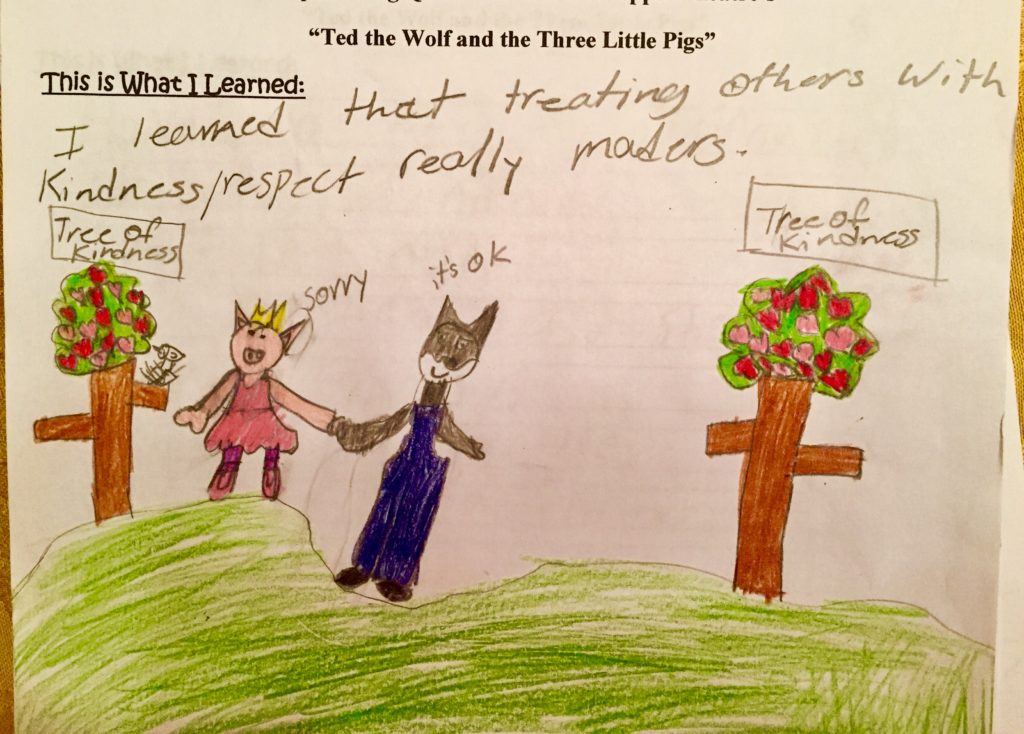 “Ted the Wolf and the Three Little Pigs”
This is What I Learned:
I learned that treating others with
Kindness/respect really maders.
Tree of
Kindness
Tree of
Kindness
sorry
it's ok